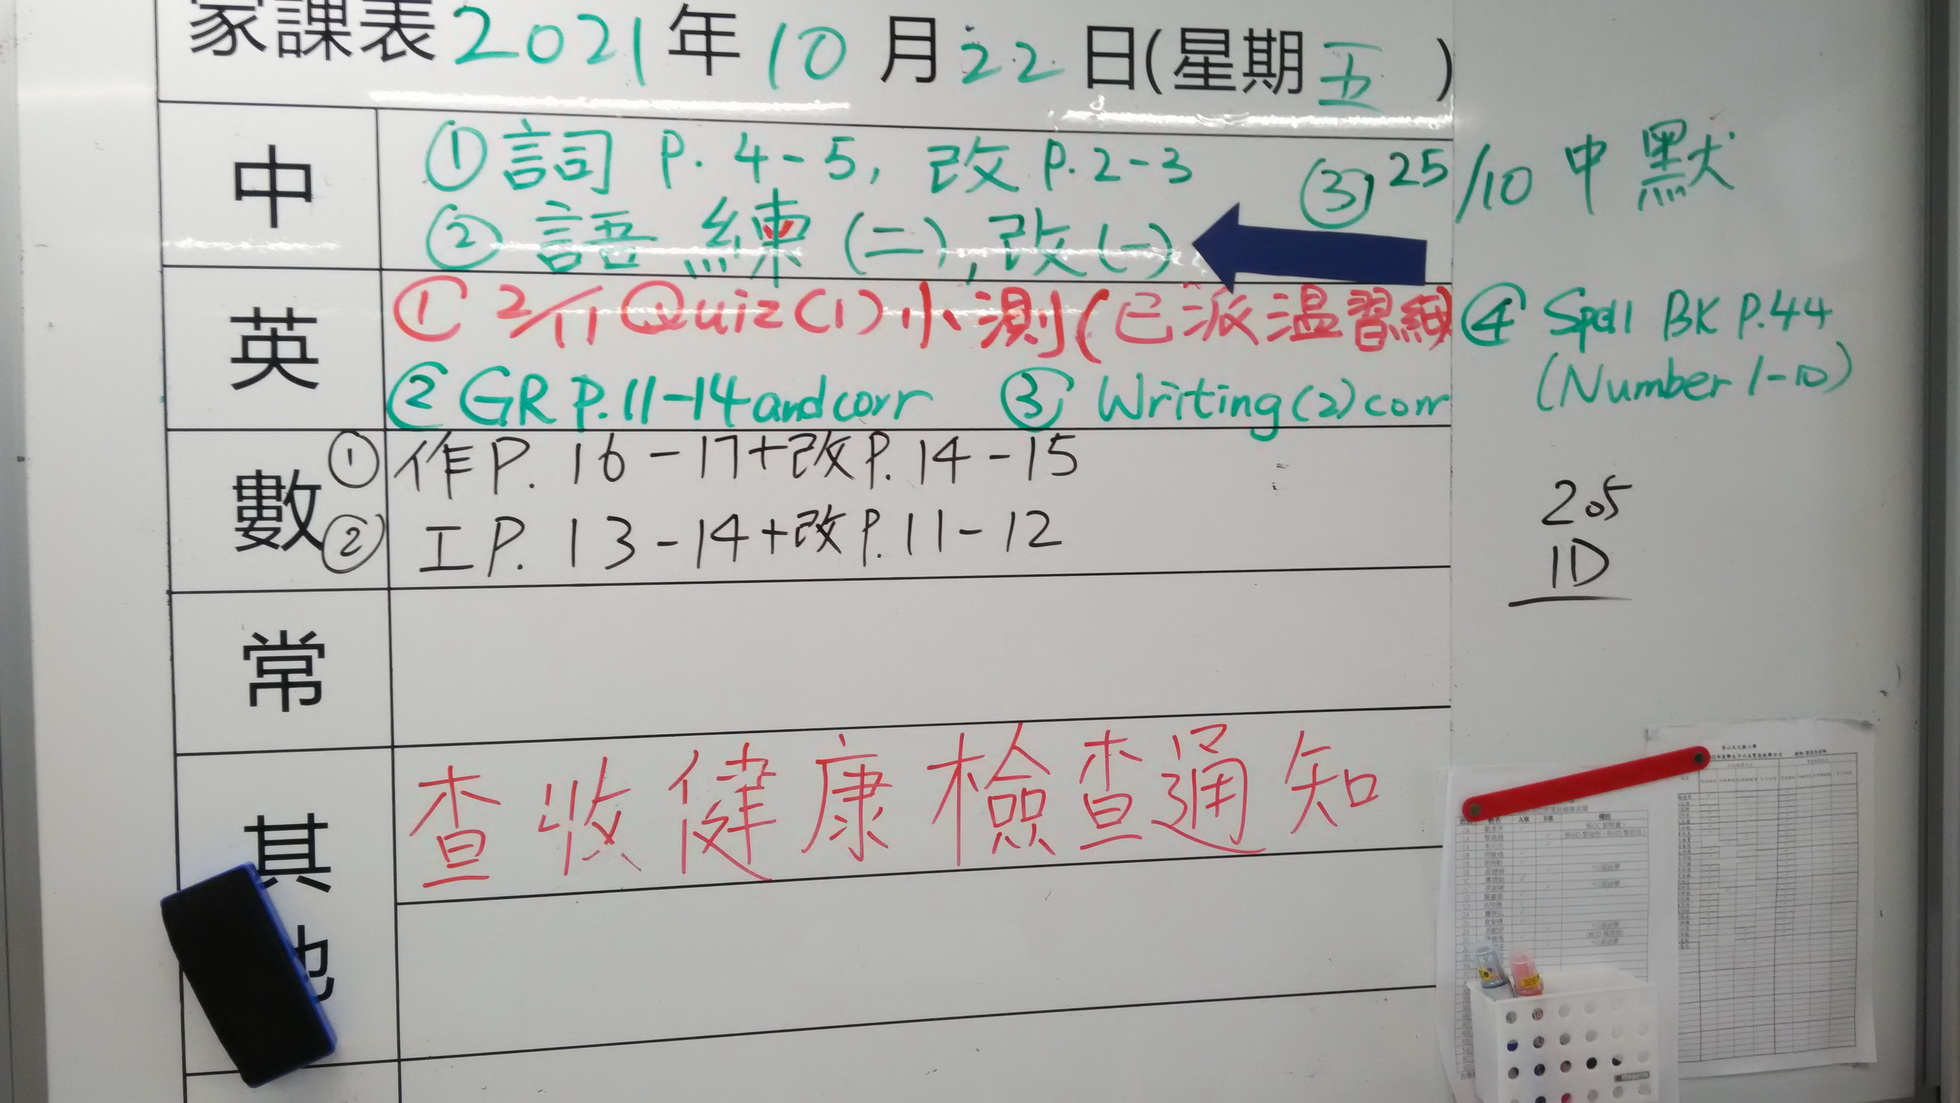 家課表 2021年 10 月 22 日(星期 五 )
中
① 詞 P. 4-5, 改 P.2-3
③ 25/10 中 默
② 語 練 (二), 改 (一)
英
① 2/11 Quiz (1) 小測 (已派溫習
④ Spell BK P.44
(Number 1-10)
② GR P.11-14 and corr ③ Writing (2) corr
數
① 作 P. 16-17+改 P. 14-15
② 工 P. 13-14+改 P. 11-12
205
1D
常
其他
查收健康檢查通知